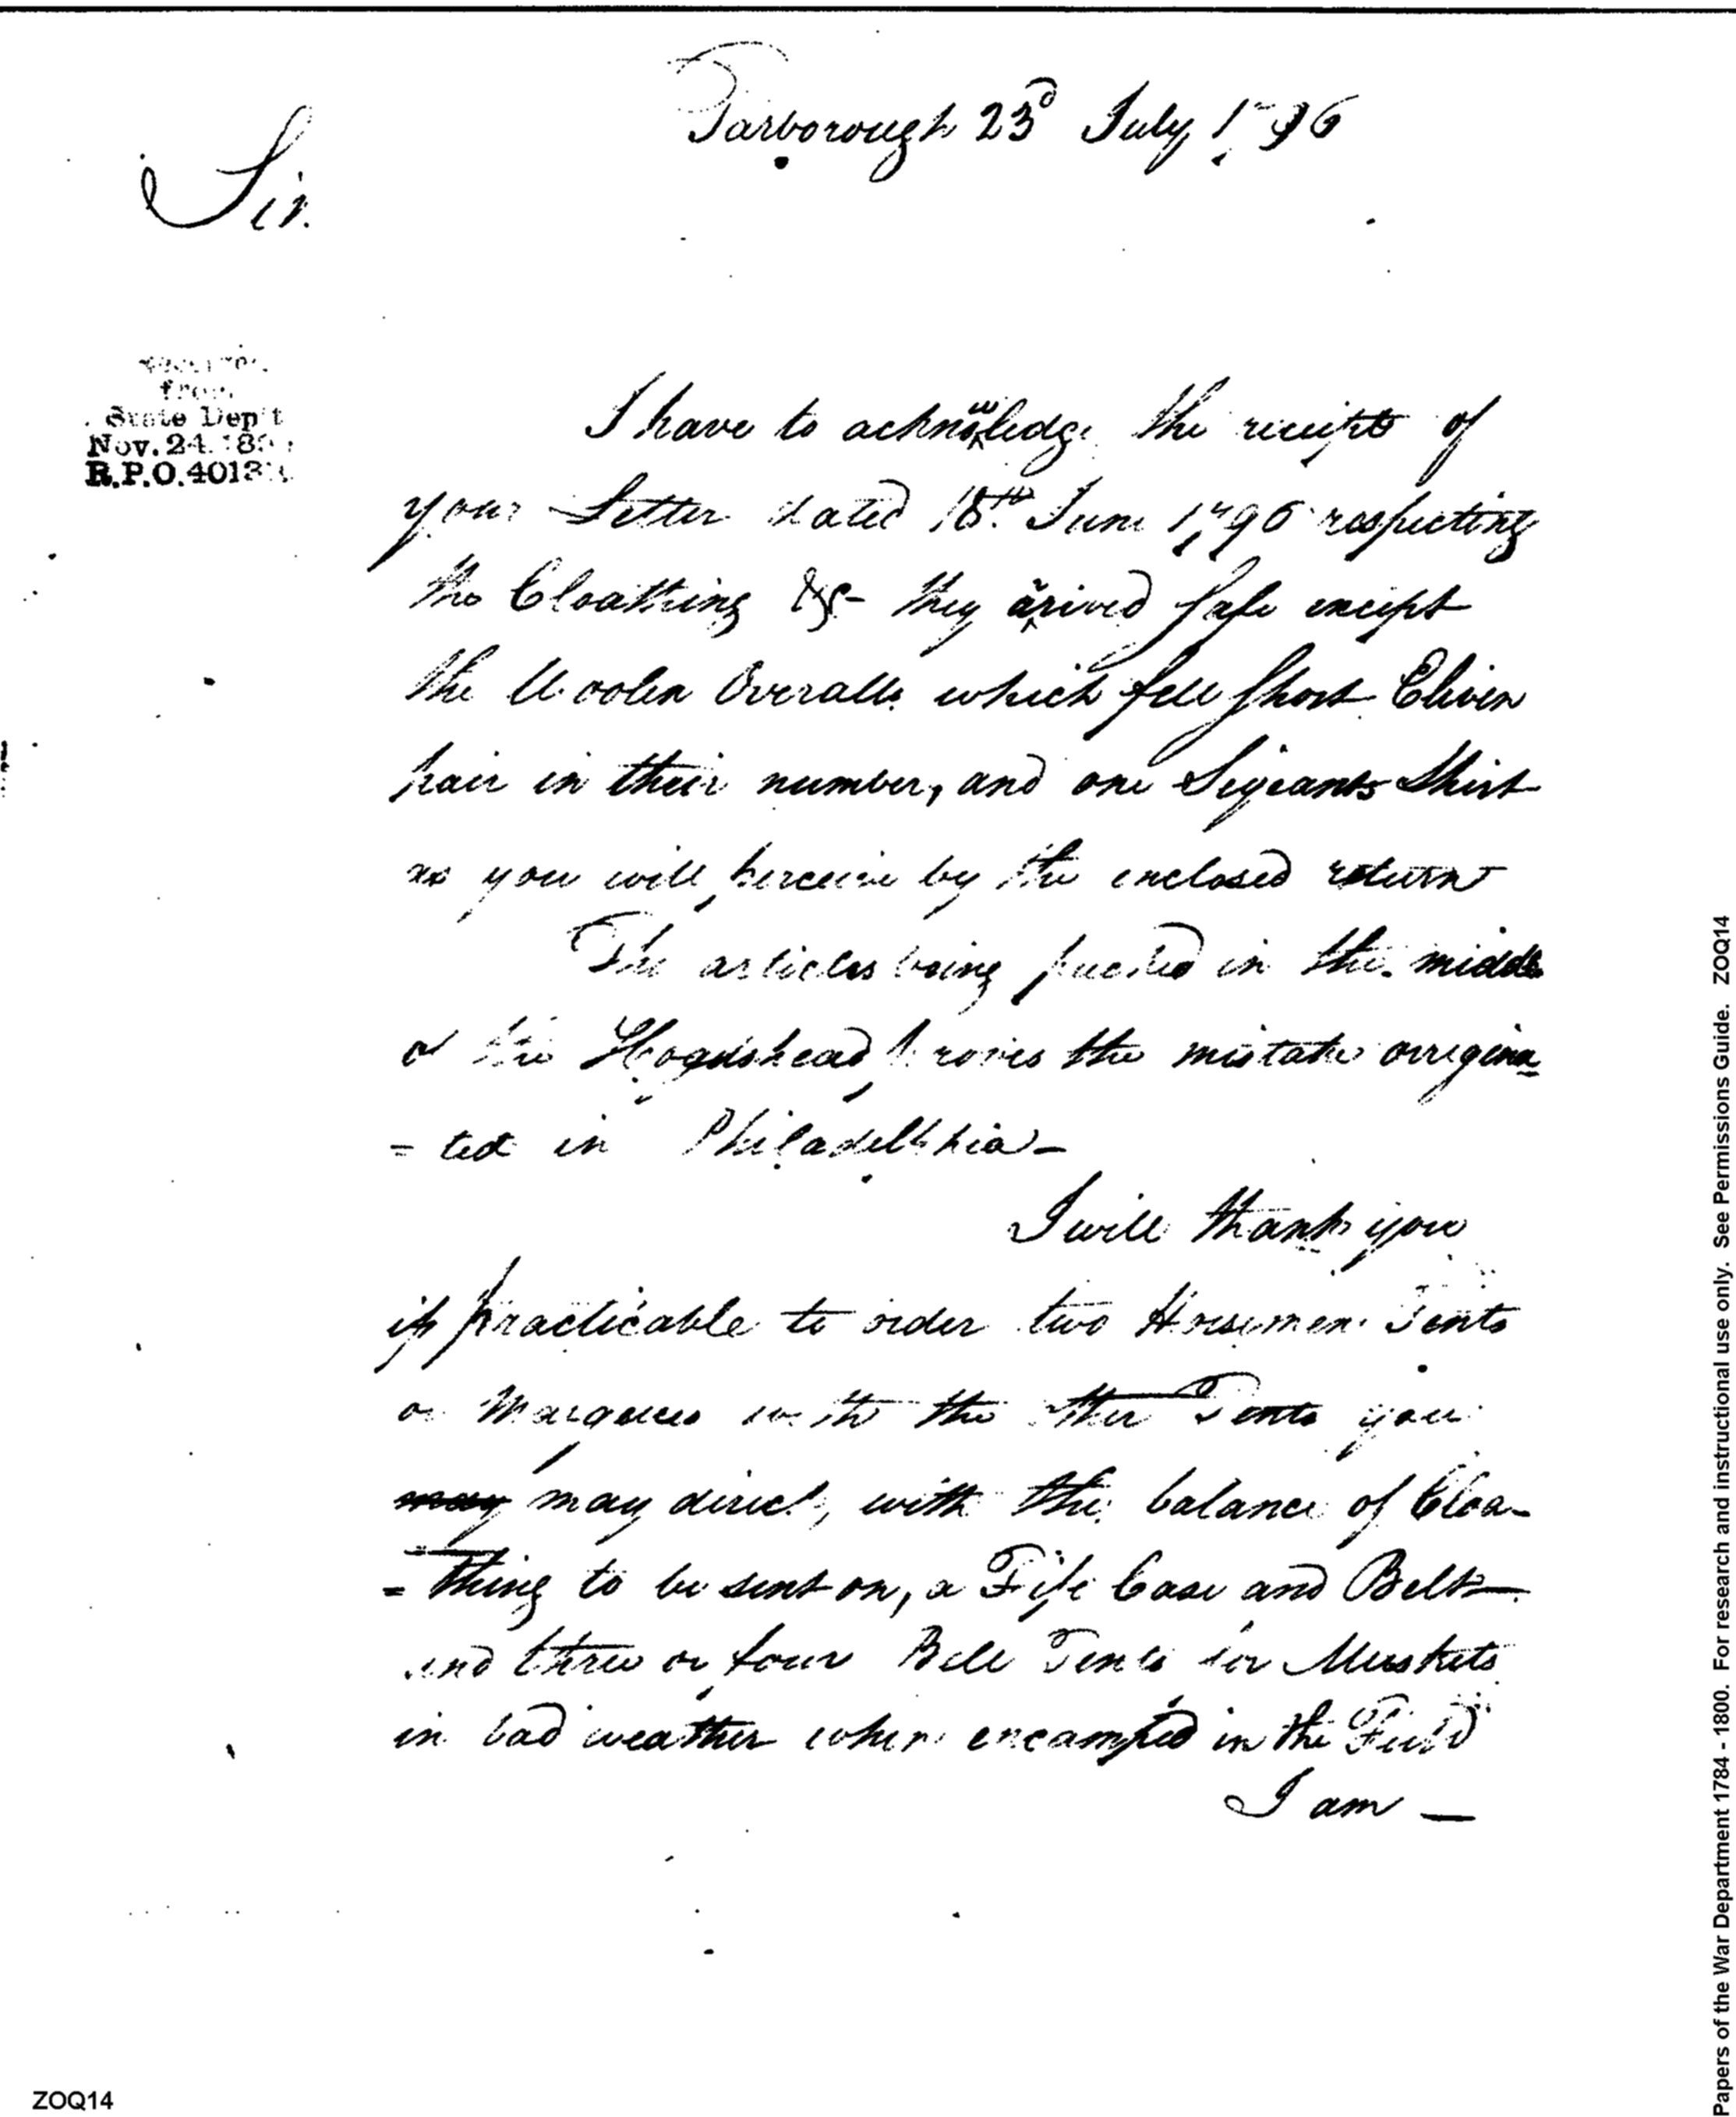 Tarborough 23d July 1796
Sir.
from
State Dep't
Nov. 24. 18
R.P.O. 4013
I have to acknowledge the receipts of
your Letter dated 18th June 1796 respecting
the Cloathing &c- they arrived safe except
the Woolen Overalls which fell short Eliven
pair in their number, and one Sigeants Shirt
as you will perceive by the enclosed return
The articles being packed in the middle
of the Hogdshead proves the mistake origina
= ted in Philadelphia-
I will thank you
if practicable to order two Horsemen Tents
or Marquees with the other Tents you
may may direct, with the balance of Cloa-
= thing to be sent on, a Fife Case and Belt
and three or four Bell Tents for Muskets
in bad weather when encamped in the Field
I am —
ZOQ14
Papers of the War Department 1784 - 1800. For research and instructional use only. See Permissions Guide. ZOQ14